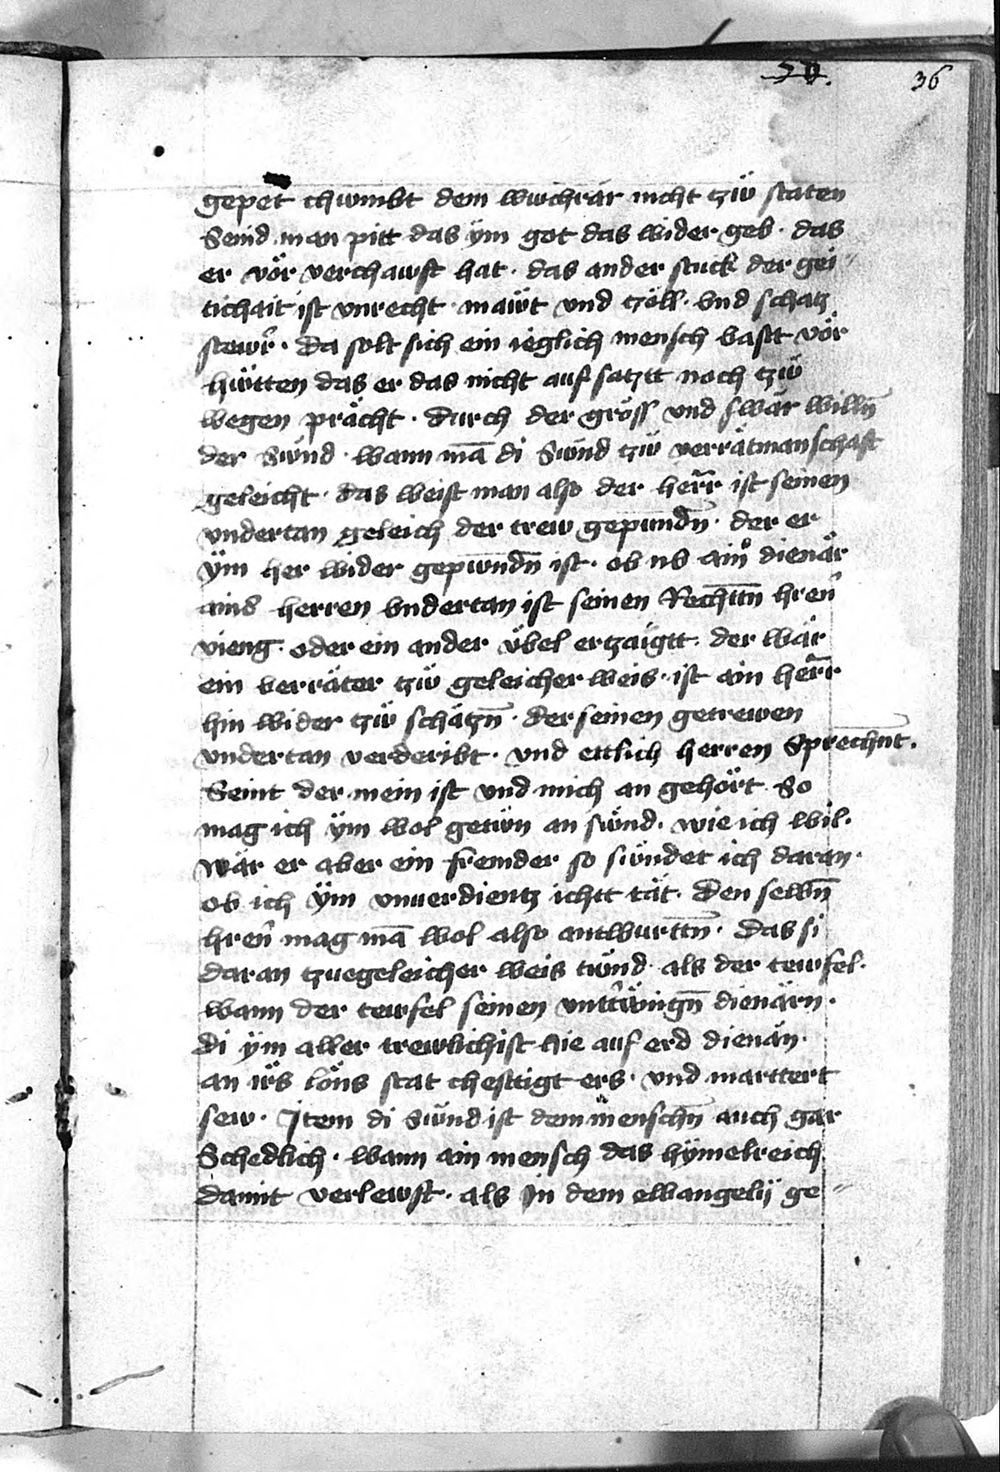 36
gepet chwmbt dem wuchrär nicht tzŵ staten
Seind man pitt das ÿm got das wider geb · das
er vör verchawft hat · das ander stuck der gei⸗
tichait ist vnrecht · mawt vnd tzöll · vnd schatz
stewr · Da solt sich ein ieglich mensch vastt vör
hüetten das er das nicht auf satztt noch tzŵ
wegen prächt · durch der gröss vnd swär willn̄
der Sünd · wann mā di Sünd tzŵ verrätmanschaft
geleicht · das weist man also der herr̄ ist seinen
vndertan geleich der trew gepundn̄ · der er
ÿm her wider gepundn̄ ist · ob nv ain dienär
ains herren vndertan ist seinen Rechttn̄ hren̄
vieng · oder ein ander übel ertzaigtt · der wär
ein verräter tzŵ geleicher weis · ist ain herr̄
hin wider tzŵ schätzn̄ · der seinen getrewen
vndertan verderibt · vnd ettlich herren Sprechnt ·
Seint der mein ist vnd mich an gehört So
mag ich ÿm wol getŵn an sünd · wie ich wil ·
wär er aber ein fremder so sündet ich daran ·
ob ich ÿm vnuerdientz ichtt tät · Den selbn̄
hren̄ mag mā wol also antwurttn̄ · Das si
daran tzuegeleicher weis tŵnd · als der tewfel ·
wann der tewfel seinen dienärn ·
di ÿm aller trewlichist hie auf erd dienän ·
an irs löns stat chesttigt ers · vnd marttert
sew · Item di Sünd ist dem menschn̄ auch gar
Schedlich · wann ain mensch das hÿmelreich
damit verlewst · als in dem ewangelÿ ge⸗